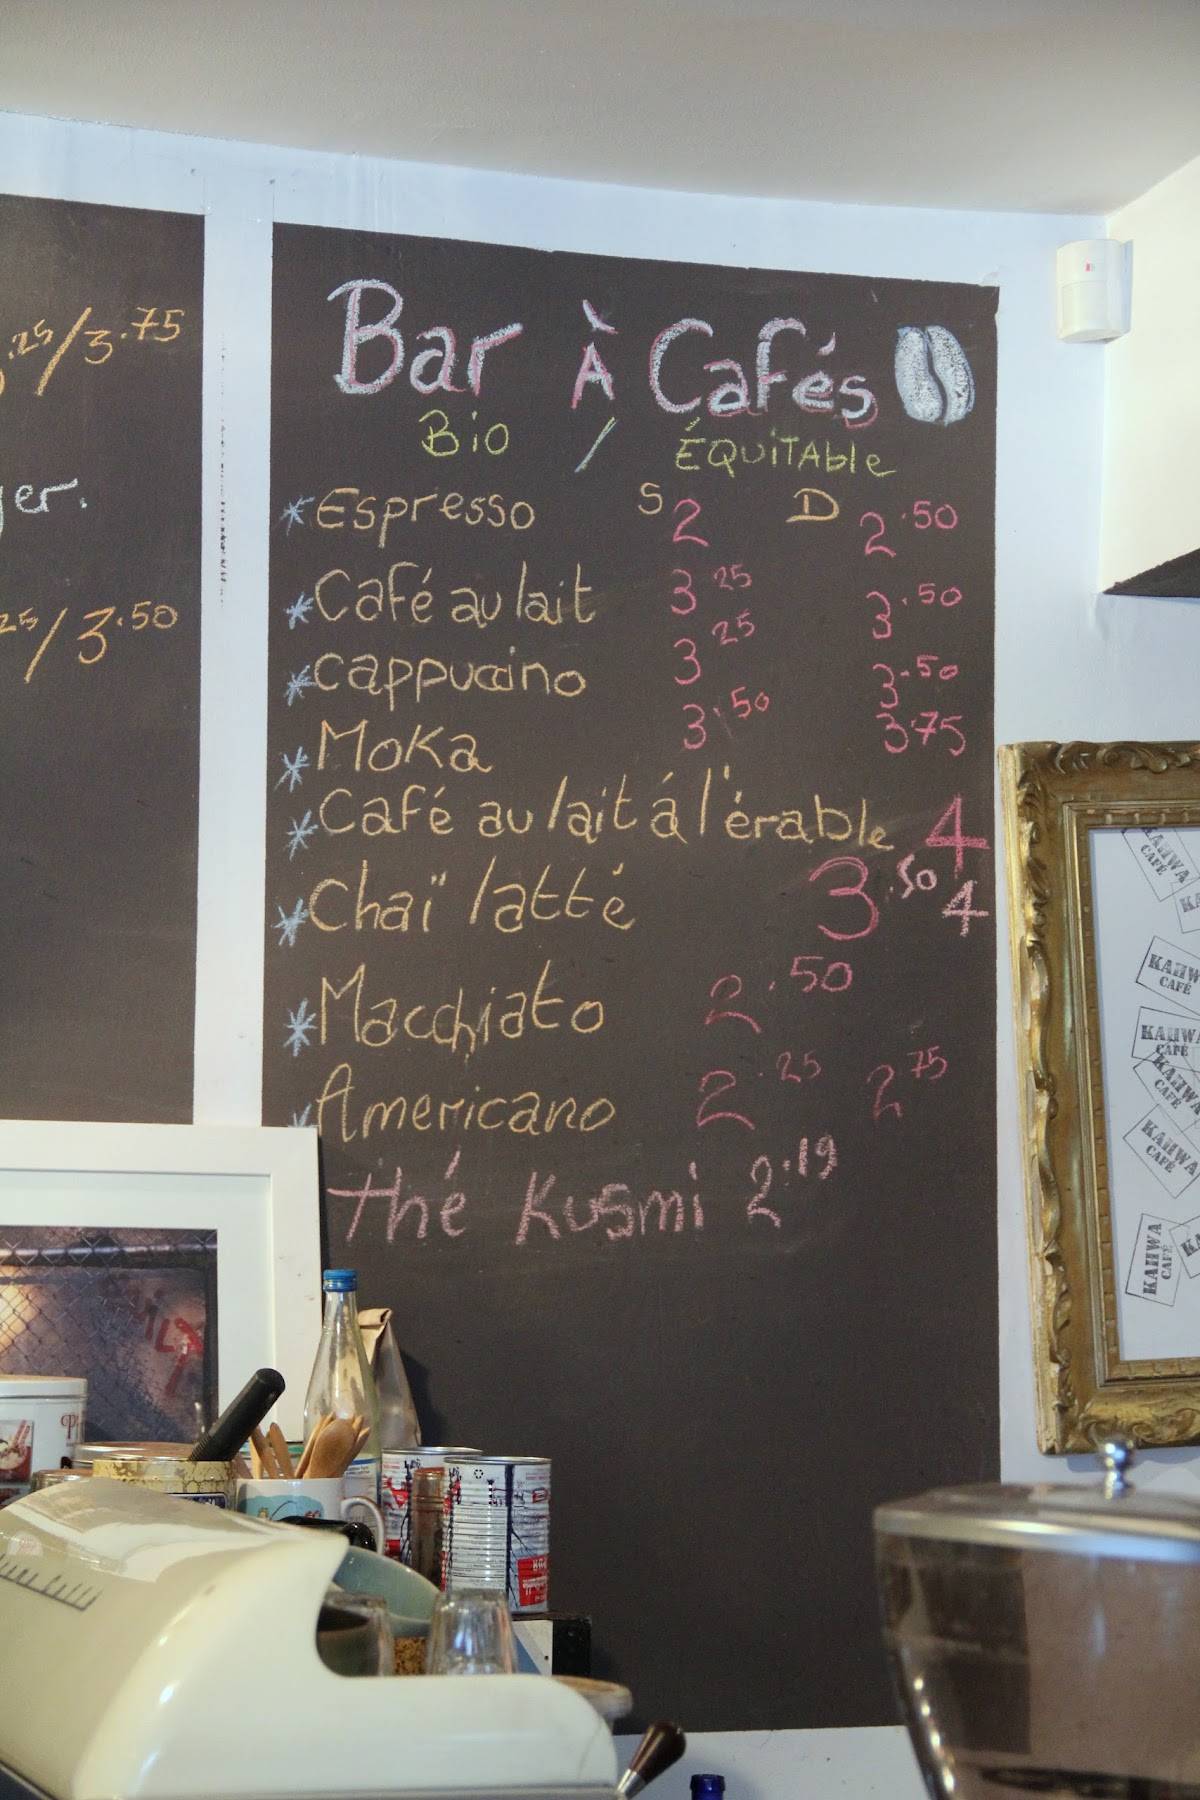 .25/3.75
ger.
25/3.50
Bar À Cafés
Bio / ÉQUITAble
*Espresso S 2 D 2.50
*Café au lait 3 25 3.50
*cappuccino 3 25 3.50
*Moka 3.50 3.75
*Café au lait á l'érable 4
*Chaï latté 3.50 4
*Macchiato 2.50
*Americano 2.25 2 75
thé Kusmi 2.19
KAHWA
CAFÉ
KAHWA
CAFÉ
KAHWA
CAFÉ
KAHWA
CAFÉ
KAHWA
CAFÉ
KAHWA
CAFÉ